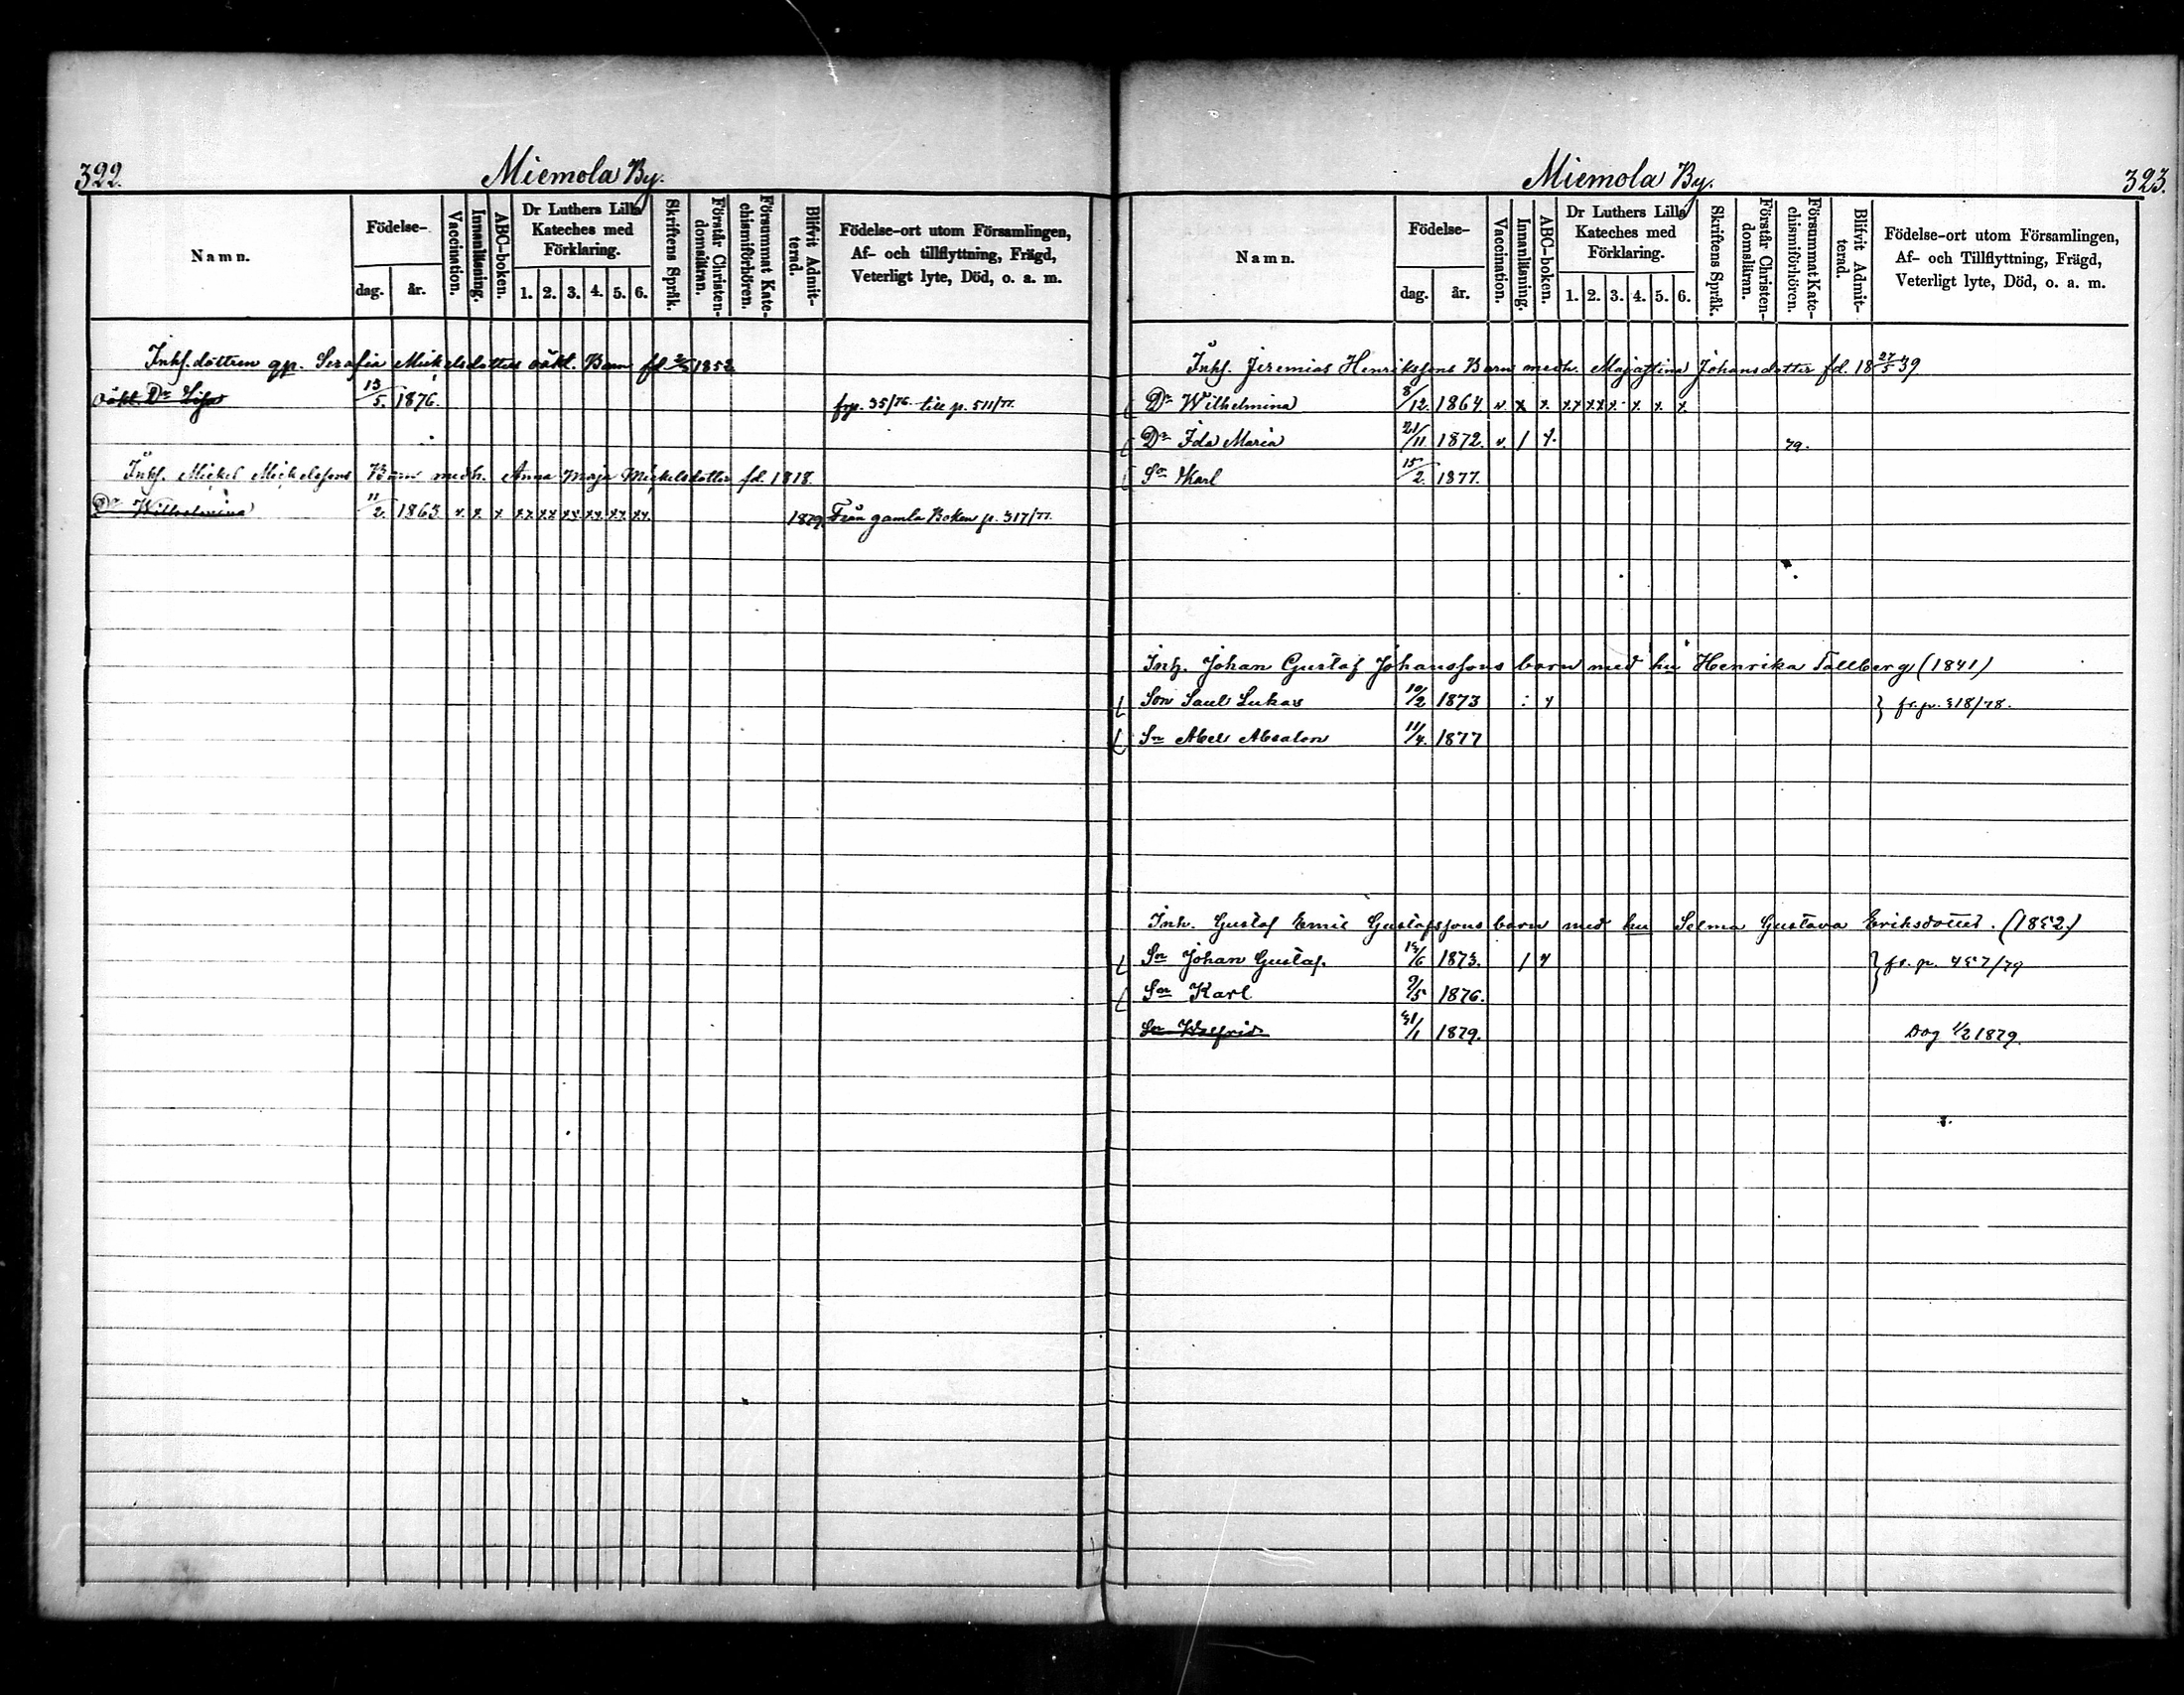 322.
Miemola By.
Namn.
Födelse-
dag.
år.
Vaccination.
Innanläsning.
ABC-boken.
Dr Luthers Lilla
Kateches med
Förklaring.
1. 2. 3. 4. 5. 6.
Skriftens Språk.
Förstår Christen-
domsläran.
Försummat Kate-
chismiförhören.
Blifvit Admit-
terad.
Födelse-ort utom Församlingen,
Af- och tillflyttning, Frägd,
Veterligt lyte, Död, o. a. m.
Inhs. dottren qp. Serafia Mickelsdotters oäkt. Barn fd 1852
oäkt. Dr Lisa 13/5. 1876. frp. 35/76. till p. 511/77.
Inhs. Mickel Mickelssons Barn medh. Anna Maja Mickelsdotter fd. 1818.
Dr Wilhelmina 11/2. 1863 v. x. x x.x x.x x.x x.x. x.x. x.x. 1879. Från gamla Boken p. 317/77.
Miemola By.
323.
Namn.
Födelse-
dag.
år.
Vaccination.
Innanläsning.
ABC-boken.
Dr Luthers Lilla
Kateches med
Förklaring.
1. 2. 3. 4. 5. 6.
Skriftens Språk.
Förstår Christen-
domslämn.
Försummat Kate-
chismiförhören.
Blifvit Admit-
terad.
Födelse-ort utom Församlingen,
Af- och Tillflyttning, Frägd,
Veterligt lyte, Död, o. a. m.
Inhs. Jeremias Henrikssons Barn medh. Majastina Johansdotter fd. 18 27/5 39
Dr Wilhelmina 8/12. 1864 v. x x. x.x x.x x. x. x. x.
Dr Ida Maria 21/11 1872. v. / x. 79.
Sn Karl 15/2. 1877.
Inh. Johan Gustaf Johanssons barn med hu Henrika Tallberg (1841)
Son Saul Lukas 10/2 1873 : x } fr. p. 318/78.
Sn Abel Absalon 11/4. 1877
Inh. Gustaf Emil Gustafssons barn med hu Selma Gustava Eriksdotter. (1852)
Sn Johan Gustaf. 1873. / x } fr. p. 457/79
Sn Karl 9/5 1876.
Sn Walfrid 31/1 1879. Dog 1/2 1879.